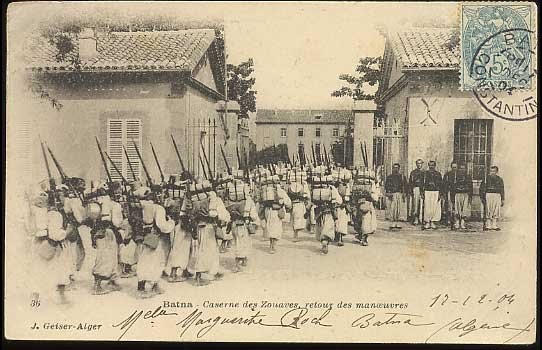 5c
BATNA
CONSTANTINE
36
Batna - Caserne des Zouaves, retour des manœuvres
17-12-04
J. Geiser-Alger
Mella Marguerite Roch Batna Algérie